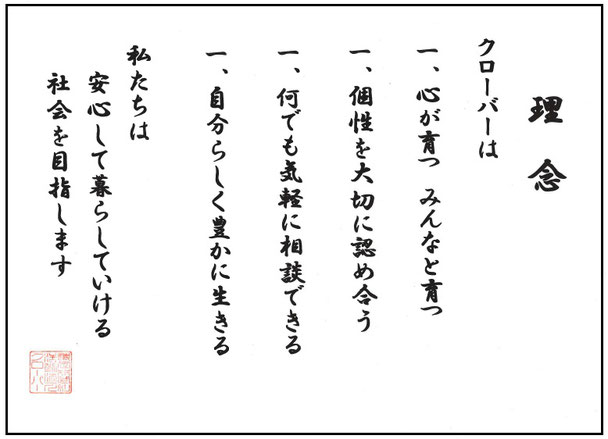 理念
クローバーは
一、心が育つ みんなと育つ
一、個性を大切に認め合う
一、何でも気軽に相談できる
一、自分らしく豊かに生きる
私たちは
安心して暮らしていける
社会を目指します
クローバー